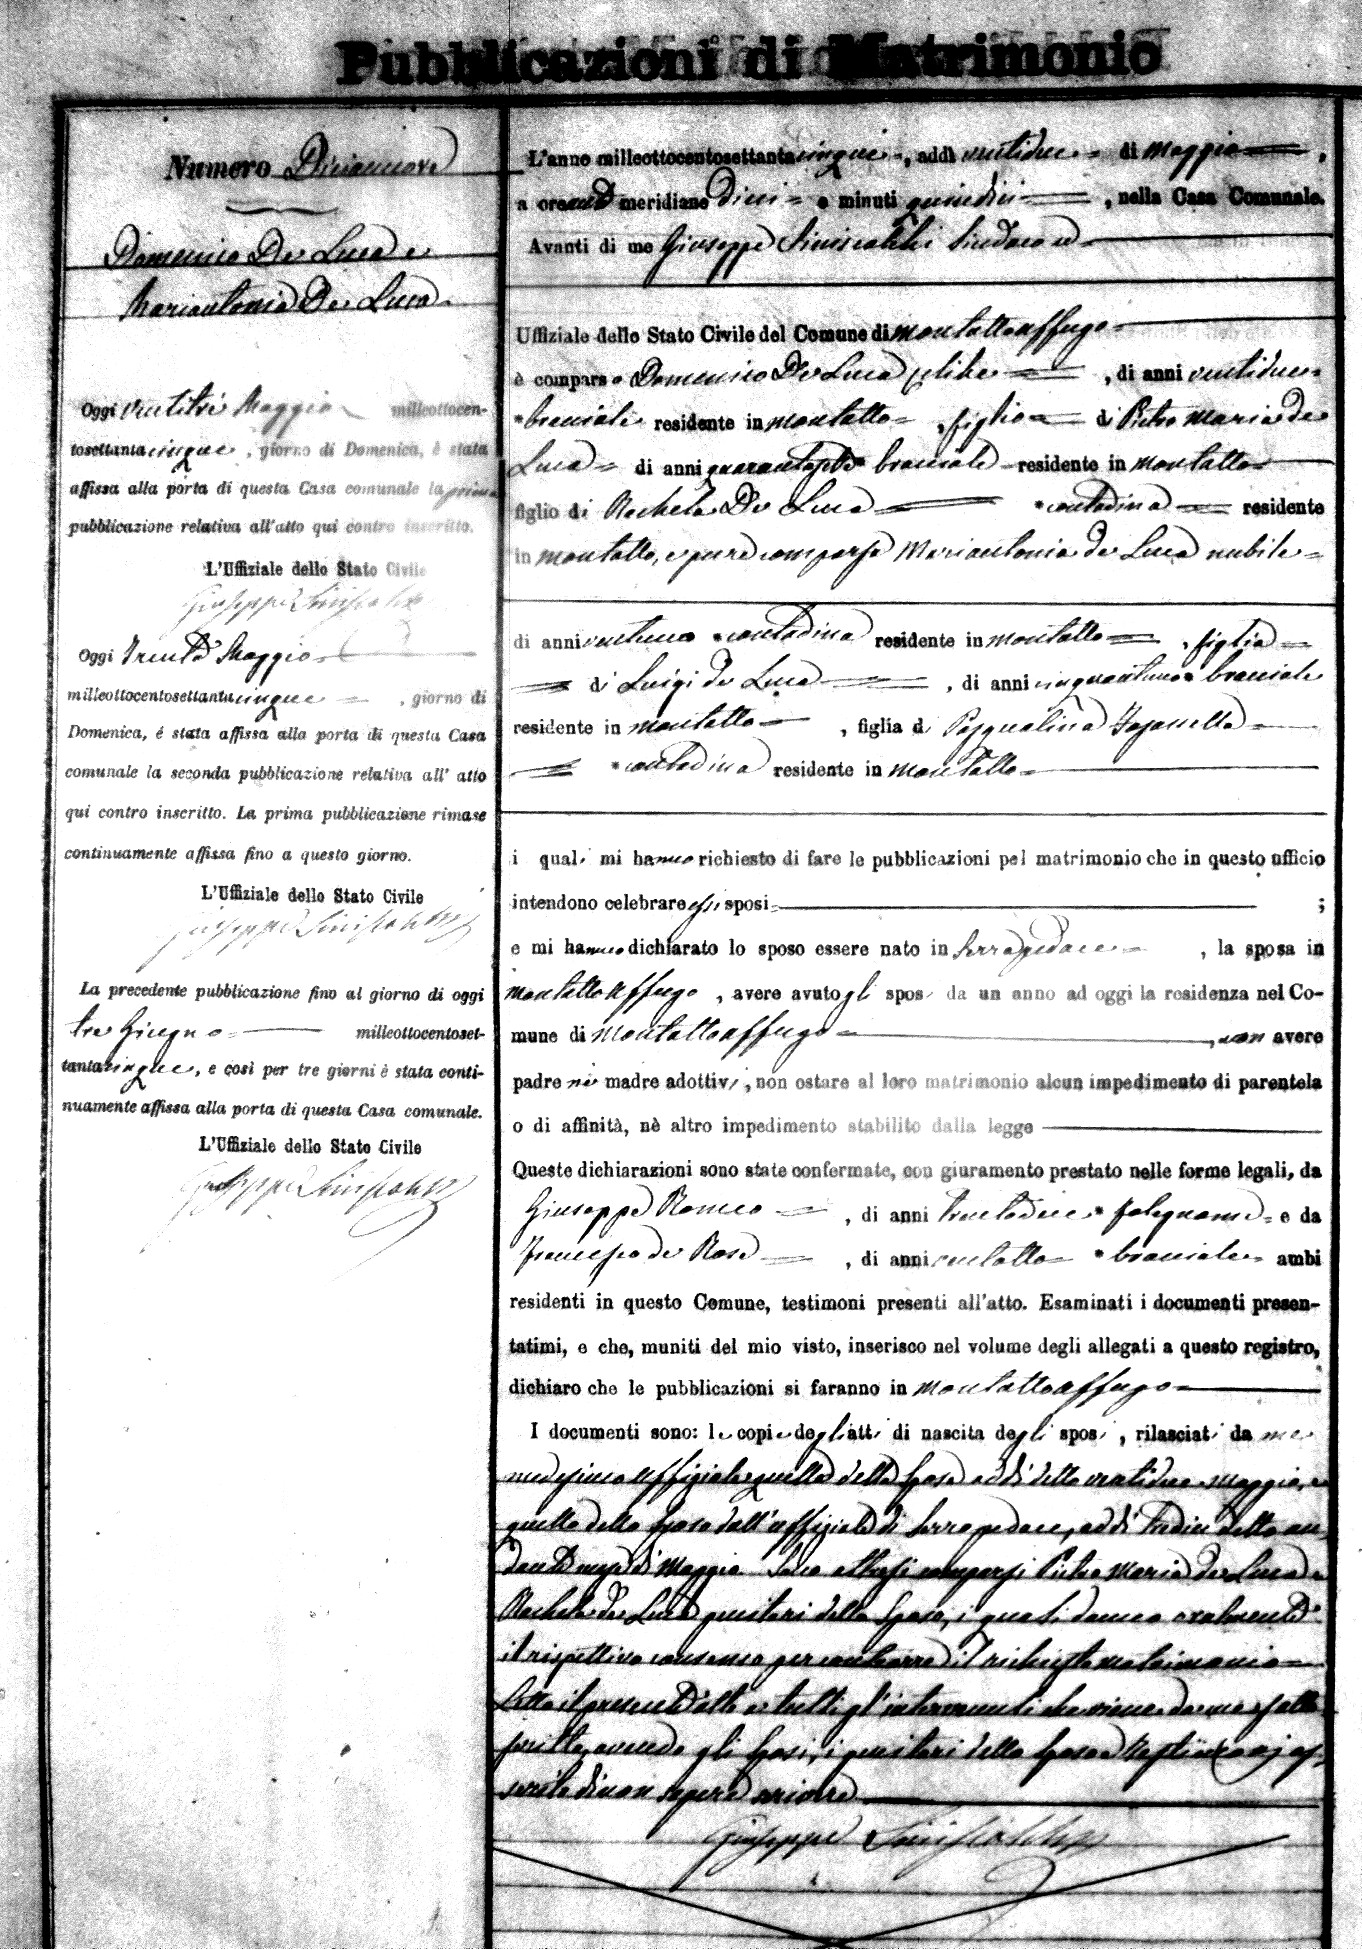 Pubblicazioni di Matrimonio
Numero Diciannove
Domenico De Luca e
Mariantonia De Luca
Oggi ventitré Maggio milleottocen-
tosettantacinque, giorno di Domenica, è stata
affissa alla porta di questa Casa comunale la prima
pubblicazione relativa all'atto qui contro inscritto.
L'Uffiziale dello Stato Civile
Giuseppe Siniscalchi
Oggi Trenta Maggio
milleottocentosettantacinque, giorno di
Domenica, é stata affissa alla porta di questa Casa
comunale la seconda pubblicazione relativa all' atto
qui contro inscritto. La prima pubblicazione rimase
continuamente affissa fino a questo giorno.
L'Uffiziale dello Stato Civile
Giuseppe Siniscalchi
La precedente pubblicazione fino al giorno di oggi
tre Giugno milleottocentoset-
tantacinque, e così per tre giorni è stata conti-
nuamente affissa alla porta di questa Casa comunale.
L'Uffiziale dello Stato Civile
Giuseppe Siniscalchi
L'anno milleottocentosettantacinque, addì ventidue di Maggio,
a ore anti meridiane dieci e minuti quindici, nella Casa Comunale.
Avanti di me Giuseppe Siniscalchi Sindaco ed
Uffiziale dello Stato Civile del Comune di Montaltouffugo
è comparso Domenico De Luca celibe, di anni ventidue
bracciale residente in Montalto, figlio di Pietro Maria de
Luca di anni bracciale residente in Montalto
figlio di Rachele De Luca contadina residente
in Montalto, e pure comparsa Mariantonia de Luca nubile
di anni ventuno contadina residente in Montalto, figlia
di Luigi de Luca, di anni cinquantuno bracciale
residente in Montalto, figlia d Pasqualina
contadina residente in Montalto
i quali mi hanno richiesto di fare le pubblicazioni pel matrimonio che in questo ufficio
intendono celebrare essi sposi ;
e mi hanno dichiarato lo sposo essere nato in Serrapedace, la sposa in
Montaltouffugo, avere avuto gli sposi da un anno ad oggi la residenza nel Co-
mune di Montaltouffugo, non avere
padre nè madre adottivi, non ostare al loro matrimonio alcun impedimento di parentela
o di affinità, nè altro impedimento stabilito dalla legge
Queste dichiarazioni sono state confermate, con giuramento prestato nelle forme legali, da
Giuseppe Romeo, di anni trentadue falegname e da
Francesco de Rose, di anni ventotto bracciale ambi
residenti in questo Comune, testimoni presenti all'atto. Esaminati i documenti presen-
tatimi, e che, muniti del mio visto, inserisco nel volume degli allegati a questo registro,
dichiaro che le pubblicazioni si faranno in Montaltouffugo
I documenti sono: le copie degli atti di nascita degli sposi, rilasciati da me
medesimo uffiziale quella della sposa addì detto ventidue Maggio, e
quella dello sposo dall'uffiziale di Serrapedace, addì tredici detto an
dante mese di Maggio Sono altresì comparsi Pietro Maria de Luca e
Rachele de Luca genitori dello sposo, i quali danno oralmente
il rispettivo consenso per contrarre il richiesto matrimonio
Letto il presente atto a tutti gl'intervenuti che viene da me solo
scritto, avendo gli sposi, i genitori dello sposo e testimonj as
serito di non sapere scrivere
Giuseppe Siniscalchi